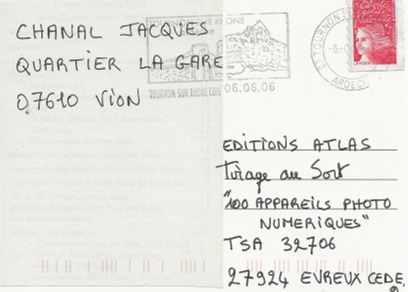 CHANAL JACQUES
QUARTIER LA GARE
07610 VION
TOURNON SUR RHONE
06.06.06
EDITIONS ATLAS
Tirage au Sort
"100 APPAREILS PHOTO
NUMERIQUES"
TSA 32706
27924 EVREUX CEDE